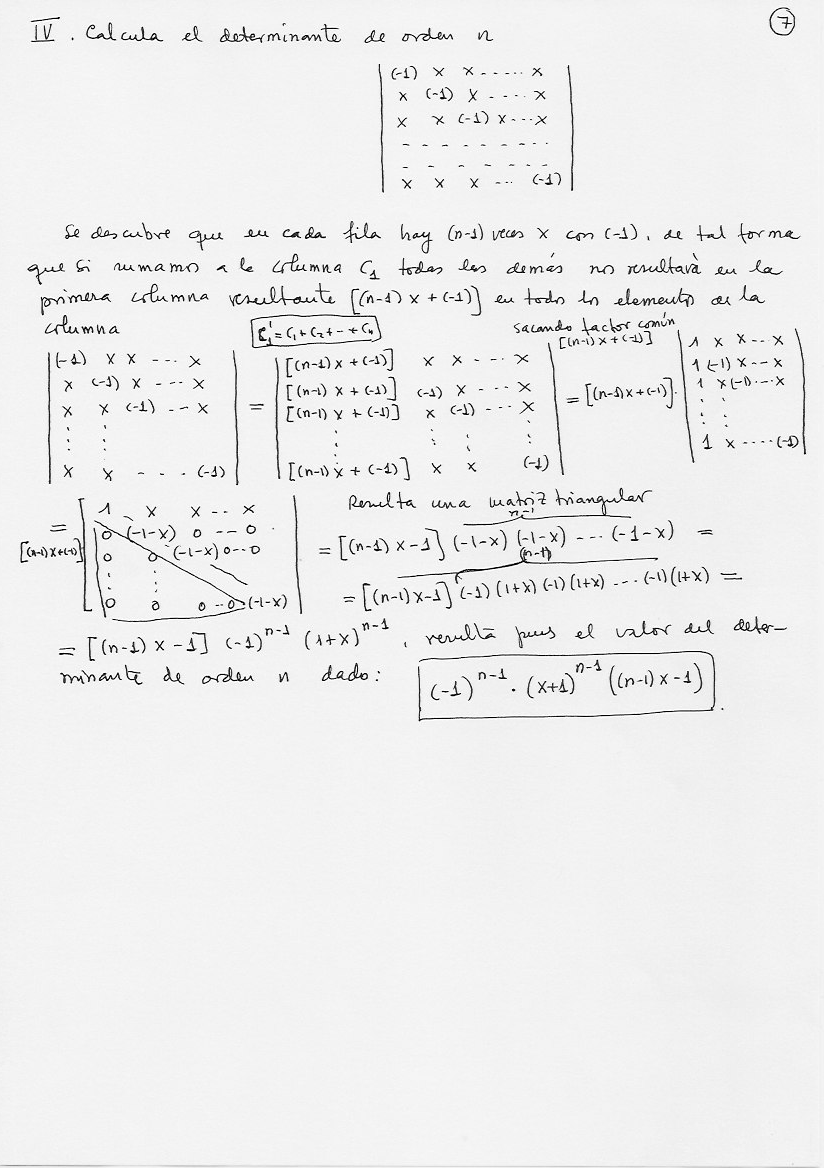 IV. Calcula el determinante de orden n
7
(-1) x x ----- x
x (-1) x ---- x
x x (-1) x --- x
- - - - - - - - -
- - - - - - - -
x x x --- (-1)
Se descubre que en cada fila hay (n-1) veces x con (-1), de tal forma
que si sumamo a la columna C₁ todas las demás nos resultará en la
primera columna resultante [(n-1)x+(-1)] en todo los elementos de la
columna
C₁' = C₁ + C₂ + -- + Cₙ
sacando factor común
[(n-1)x+(-1)]
|(-1) x x --- x| = |[(n-1)x+(-1)] x x --- x| = [(n-1)x+(-1)]. |1 x x -- x|
|x (-1) x --- x| |[(n-1)x+(-1)] (-1) x --- x| |1 (-1) x -- x|
|x x (-1) -- x| |[(n-1)x+(-1)] x (-1) --- x| |1 x (-1) -- x|
|: : :| |: : : :| |: :|
|x x - - - (-1)| |[(n-1)x+(-1)] x x (-1)| |1 x ---- (-1)|
= [(n-1)x+(-1)] |1 x x -- x|
|0 (-1-x) 0 --- 0|
|0 0 (-1-x) 0 -- 0|
|: :|
|0 0 0 -- 0 (-1-x)|
Resulta una matriz triangular
n-1
= [(n-1)x-1] (-1-x) (-1-x) --- (-1-x) =
(n-1)
= [(n-1)x-1] (-1)(1+x)(-1)(1+x) --- (-1)(1+x) =
= [(n-1)x-1] (-1)ⁿ⁻¹ (1+x)ⁿ⁻¹, resulta pues el valor del deter-
minante de orden n dado: (-1)ⁿ⁻¹ · (x+1)ⁿ⁻¹ ((n-1)x-1).